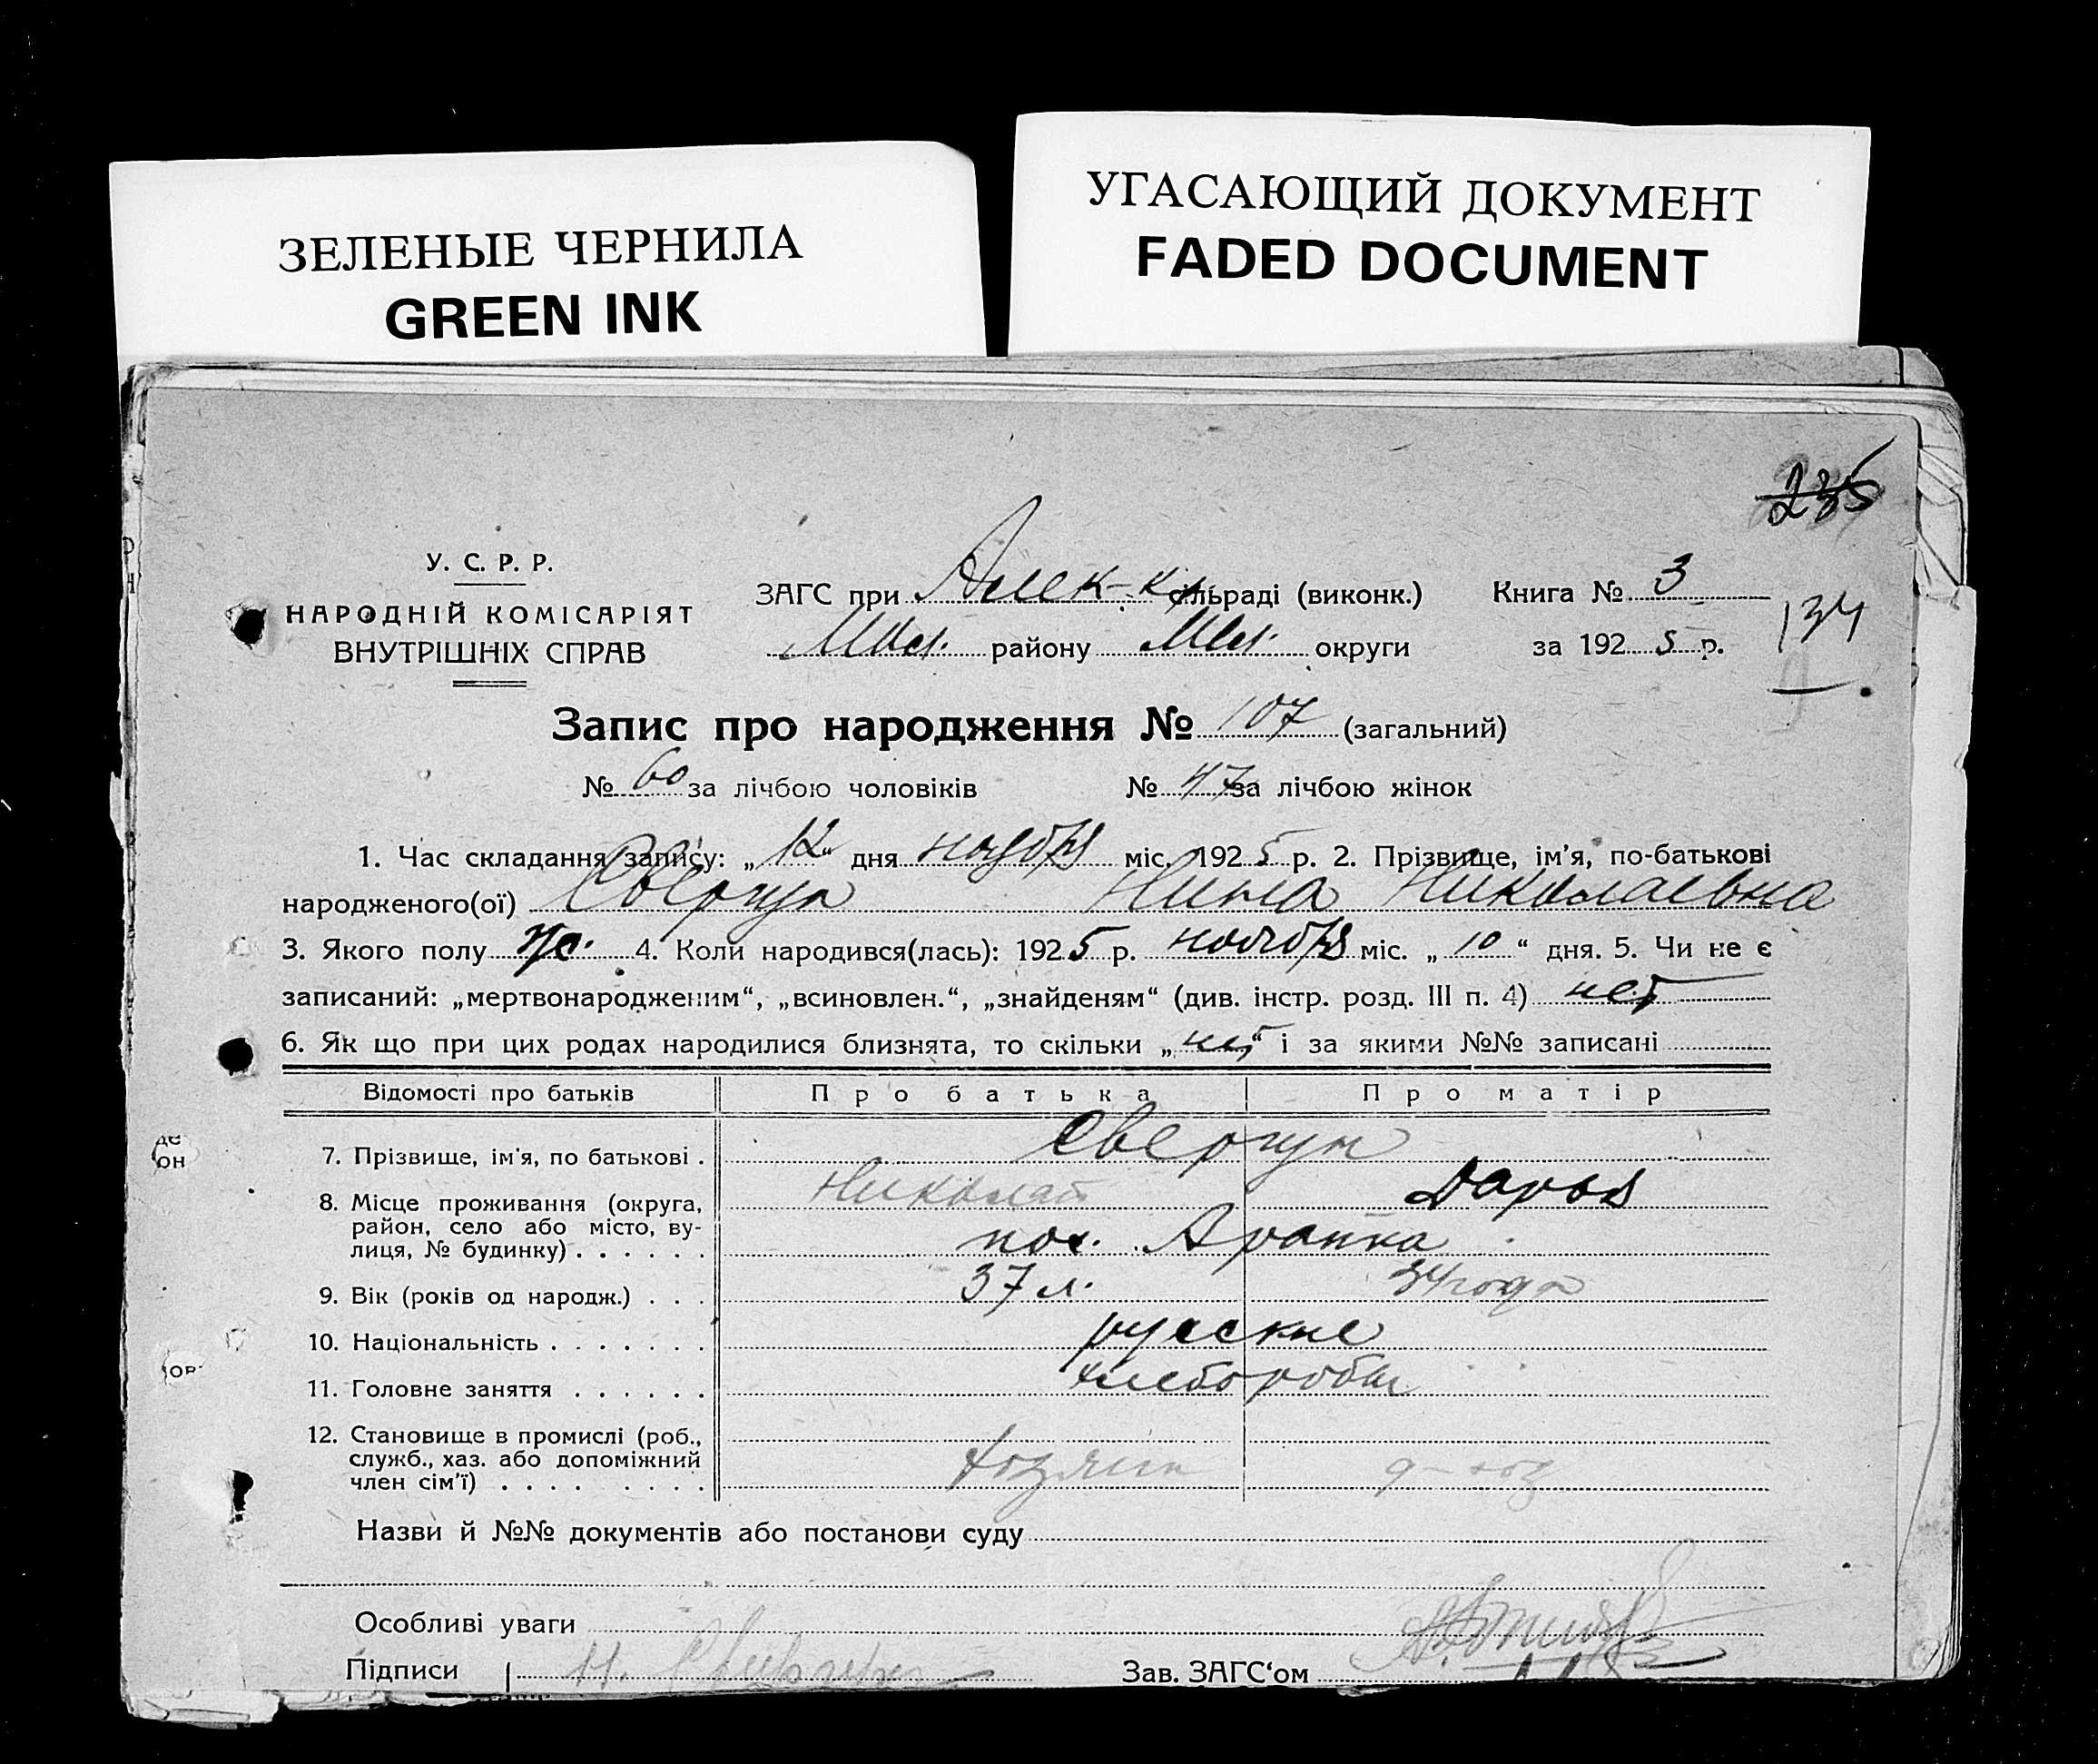 ЗЕЛЕНЫЕ ЧЕРНИЛА
GREEN INK
УГАСАЮЩИЙ ДОКУМЕНТ
FADED DOCUMENT
235
У. С. Р. Р.
НАРОДНІЙ КОМІСАРІЯТ
ВНУТРІШНІХ СПРАВ
ЗАГС при Алек-к сільраді (виконк.) Книга № 3
району округи за 1925 р.
134
Запис про народження № 107 (загальний)
№ 60 за лічбою чоловіків № 47 за лічбою жінок
1. Час складання запису: „ 12 “ дня ноября міс. 1925 р. 2. Прізвище, ім’я, по-батькові
народженого(ої) Свергун Нина Николаевна
3. Якого полу ж. 4. Коли народився(лась): 1925 р. ноября міс. „ 10 “ дня. 5. Чи не є
записаний: „мертвонародженим“, „всиновлен.“, „знайденям“ (див. інстр. розд. III п. 4) нет
6. Як що при цих родах народилися близнята, то скільки „ нет “ і за якими №№ записані
Відомості про батьків Про батька Про матір
7. Прізвище, ім'я, по батькові . Свергун
Николай Дарья
8. Місце проживання (округа,
район, село або місто, ву-
лиця, № будинку) . . . . . . пос.
9. Вік (років од народж.) . . . 37 л. 34 года
10. Національність . . . . . . . русские
11. Головне заняття . . . . . . хлеборобы
12. Становище в промислі (роб.,
служб., хаз. або допоміжний
член сім’ї) . . . . . . . . хозяин д-хоз
Назви й №№ документів або постанови суду
Особливі уваги
Підписи Н. Свергун Зав. ЗАГС‘ом